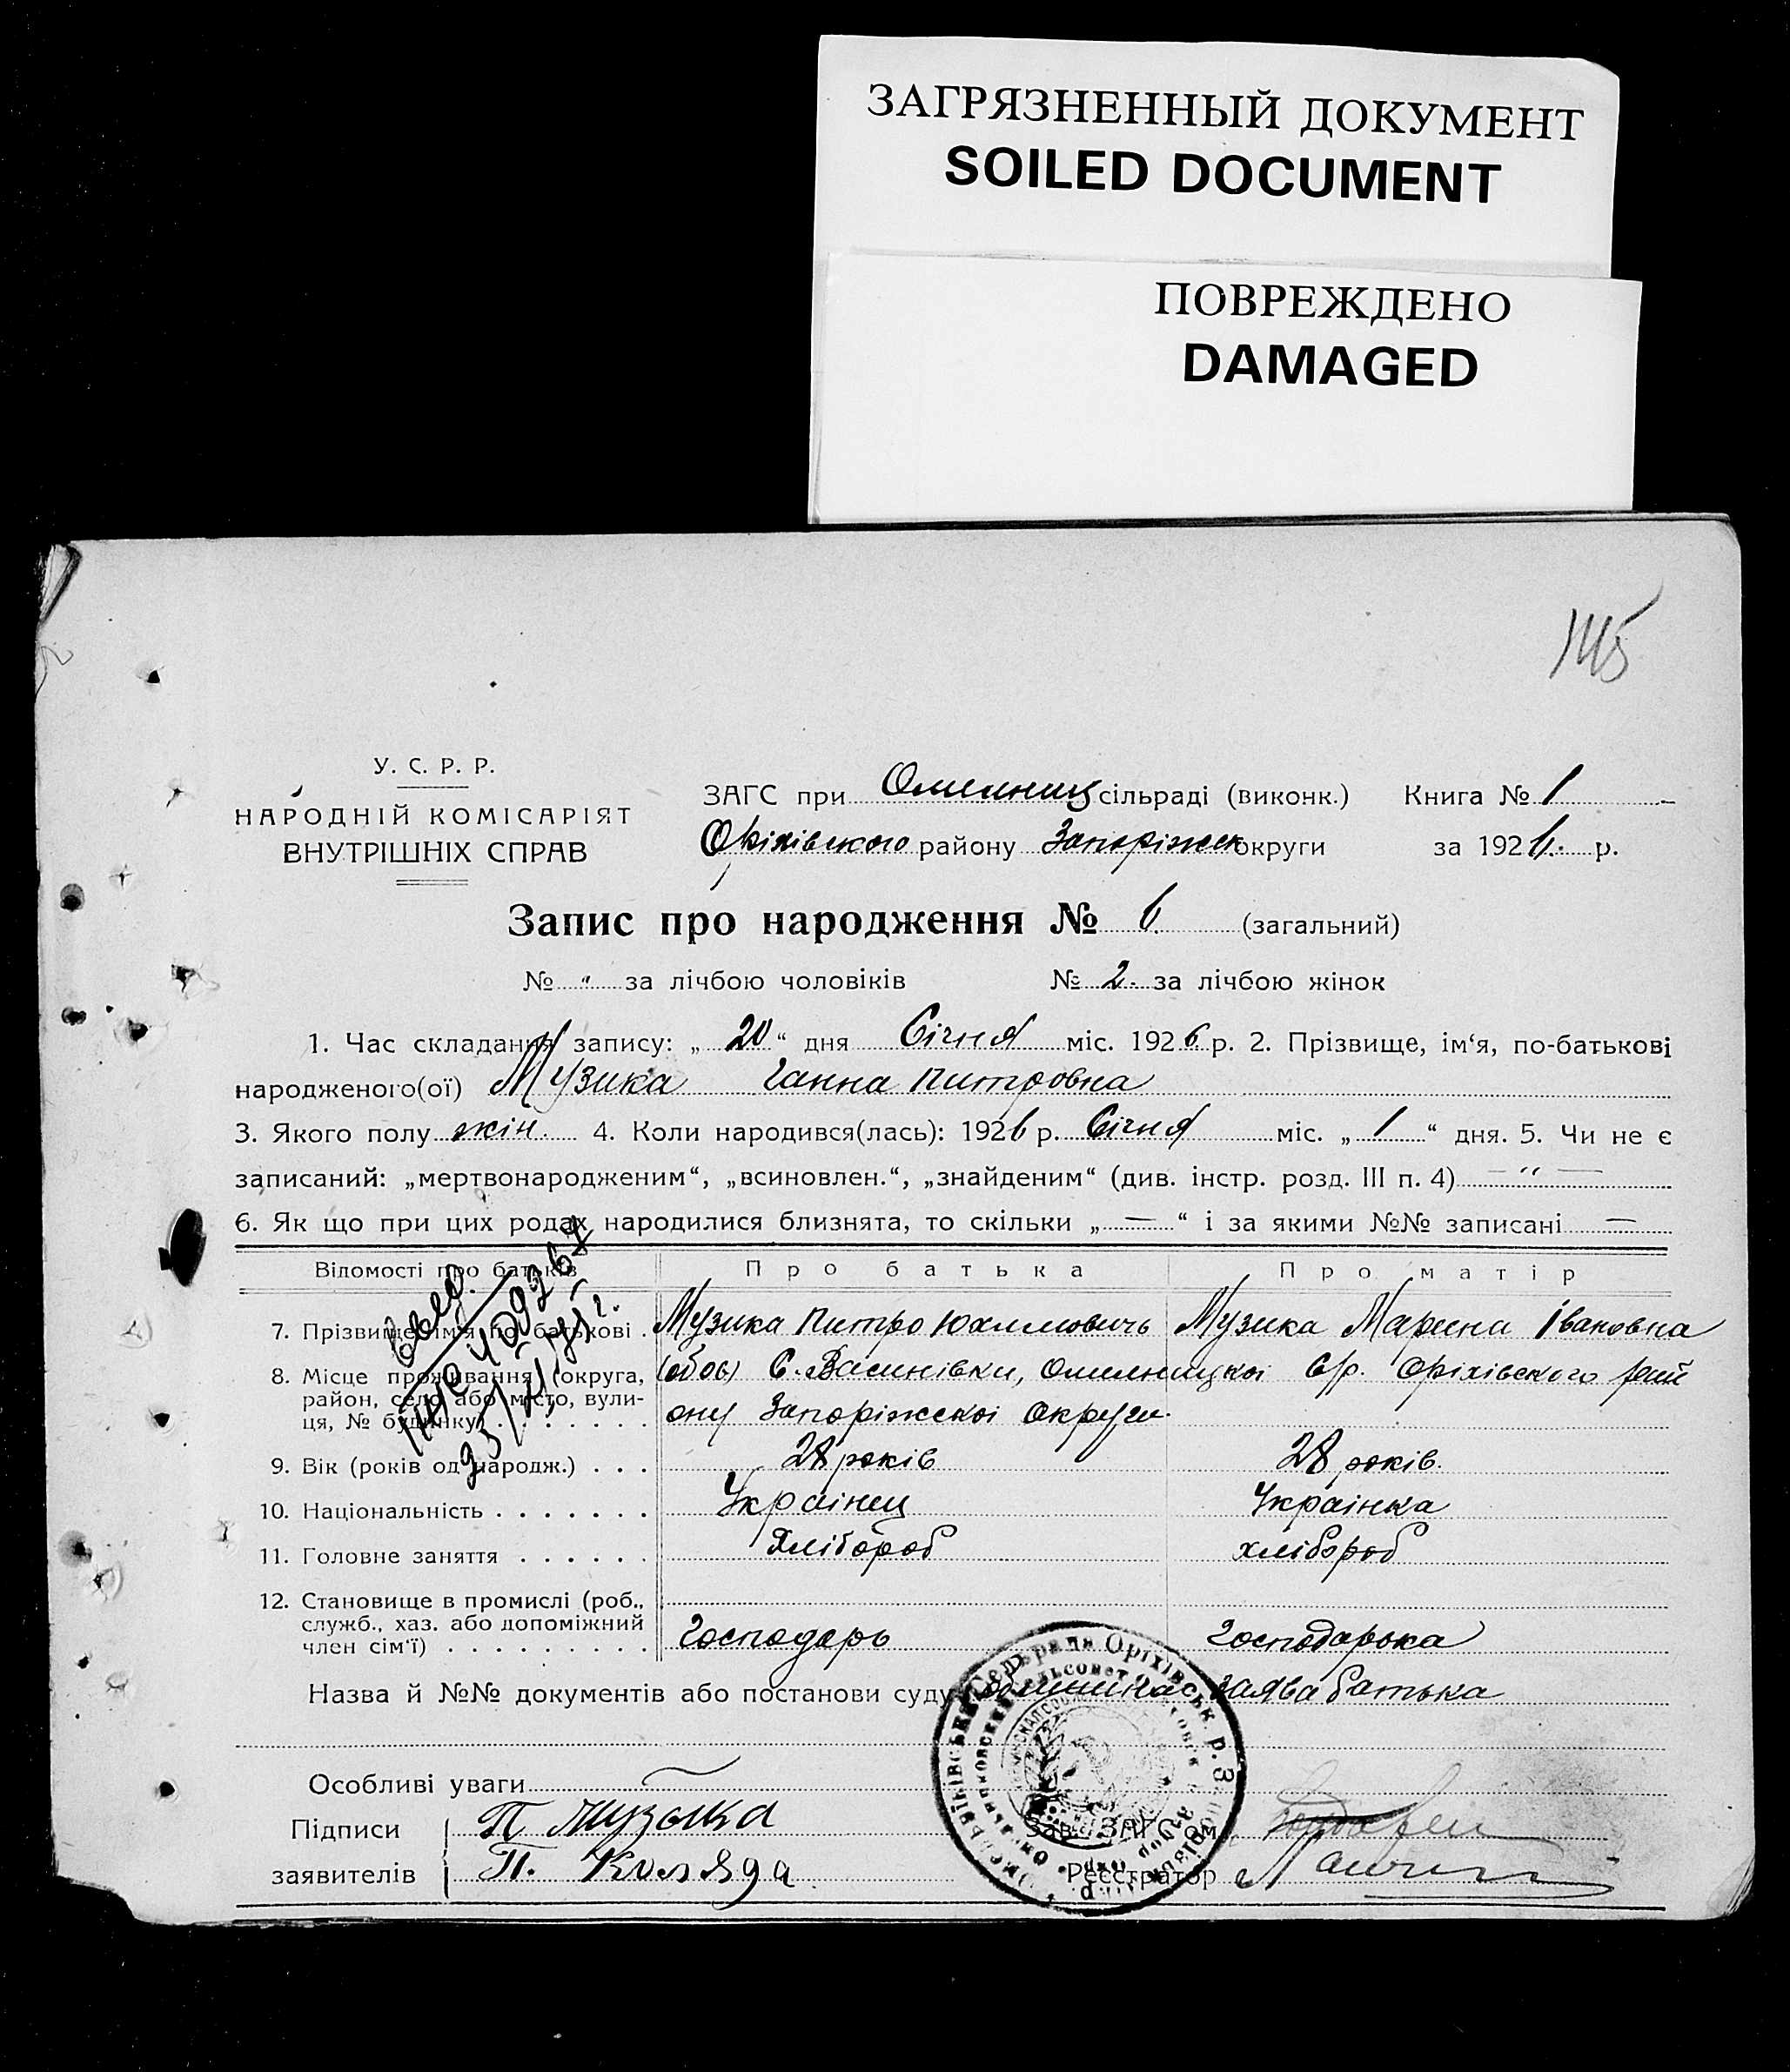 ЗАГРЯЗНЕННЫЙ ДОКУМЕНТ
SOILED DOCUMENT
ПОВРЕЖДЕНО
DAMAGED
145
У. С. Р. Р.
НАРОДНІЙ КОМІСАРІЯТ
ВНУТРІШНІХ СПРАВ
ЗАГС при Омельниц сільраді (виконк.) Книга № 1
Оріхівського району Запоріжск округи за 1926. р.
Запис про народження № 6. (загальний)
№ " за лічбою чоловіків № 2. за лічбою жінок
1. Час складання запису: „ 20 “ дня Січня міс. 1926 р. 2. Прізвище, ім‘я, по-батькові
народженого(ої) Музика Ганна Питровна
3. Якого полу жін. 4. Коли народився(лась): 1926 р. Січня міс. „ 1 “ дня. 5. Чи не є
записаний: „мертвонародженим“, „всиновлен.“, „знайденим“ (див. інстр. розд. III п. 4) — " —
6. Як що при цих родах народилися близнята, то скільки „ — “ і за якими №№ записані —
Відомості про батьків Про батька Про матір
7. Прізвище, ім‘я по батькові . Музика Питро Юхимовичь Музика Марини Івановна
8. Місце проживання (округа, район, село або місто, вулиця, № будинку) (обоє) С. Васинівки, Омельницкоі с/р. Оріхівского рай
ону Запоріжскоі Округи.
9. Вік (років од народж.) . . . 28 років 28 років.
10. Національність . . . . . . . Украінец Украінка
11. Головне заняття . . . . . . Хлібороб хлібороб
12. Становище в промислі (роб.,
служб., хаз. або допоміжний
член сім‘ї) . . . . . . . . . Господарь Господарька
Назва й №№ документів або постанови суду заява батька
Особливі уваги
Підписи П Музыка Зав. ЗАГС‘ом
заявителів П. Коляда Реєстратор